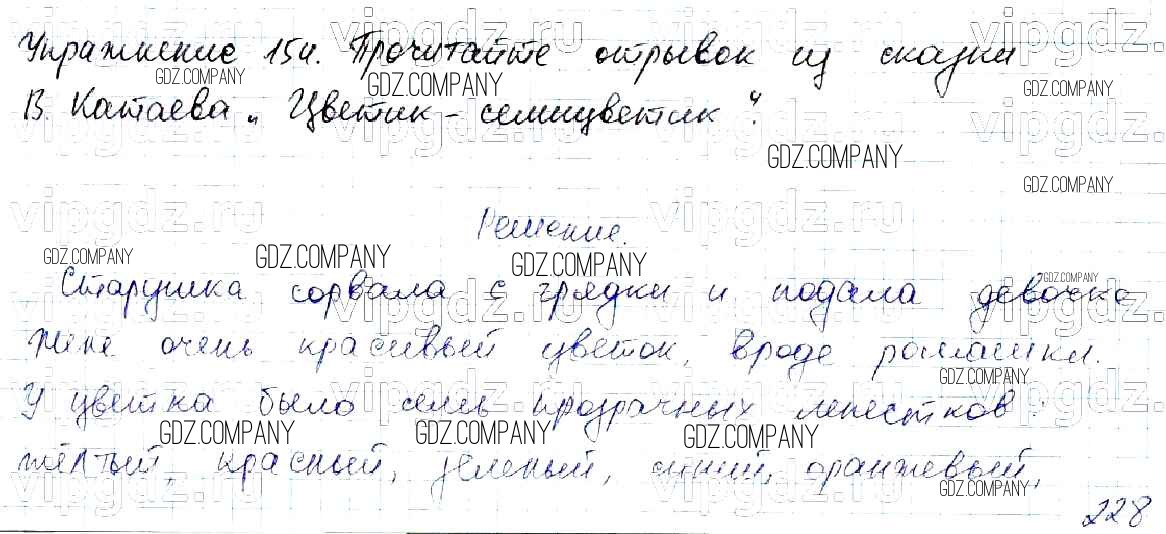 Упражнение 154. Прочитайте отрывок из сказки
В. Катаева „Цветик-семицветик“.
Решение.
Старушка сорвала с грядки и подала девочке
Жене очень красивый цветок, вроде ромашки.
У цветка было семь прозрачных лепестков:
жёлтый, красный, зеленый, синий, оранжевый,
228